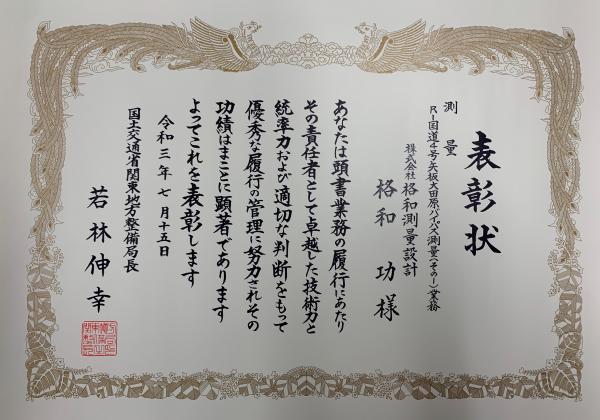 表彰状
測量
R1国道4号矢板大田原バイパス測量(その1)業務
株式会社格和測量設計
格和 功 様
あなたは頭書業務の履行にあたり
その責任者として卓越した技術力と
統率力および適切な判断をもって
優秀な履行の管理に努力されその
功績はまことに顕著であります
よってこれを表彰します
令和三年七月十五日
国土交通省関東地方整備局長
若林伸幸